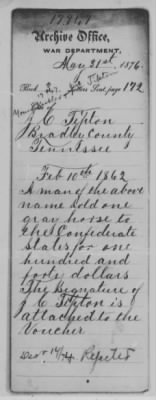 17961
Archive Office,
WAR DEPARTMENT,
May 21st, 1876.
Book Letters Sent, page 172
J. C. Tipton
Bradley County
Tennessee
Feb 10th 1862
A man of the above
name sold one
gray horse to
the Confederate
States for one
hundred and
forty dollars
The Signature of
J C Tipton is
attached to the
Voucher
Dec 14/74 Rejected